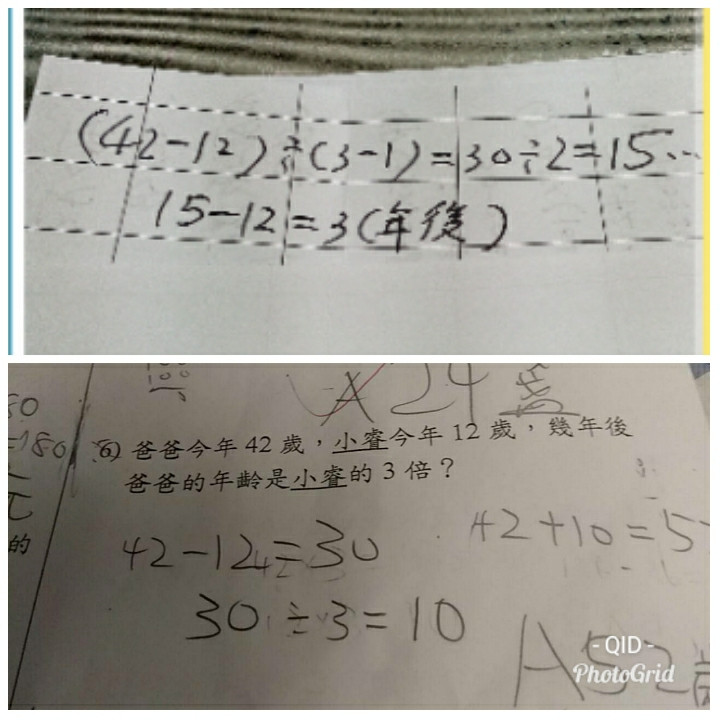 (42-12)÷(3-1)=30÷2=15…
15-12=3(年後)
A 24
⑹ 爸爸今年 42 歲，小睿今年 12 歲，幾年後
爸爸的年齡是小睿的 3 倍？
42-12=30
42+10=5
30÷3=10
A52歲
80
=180
元
的
- QID -
PhotoGrid